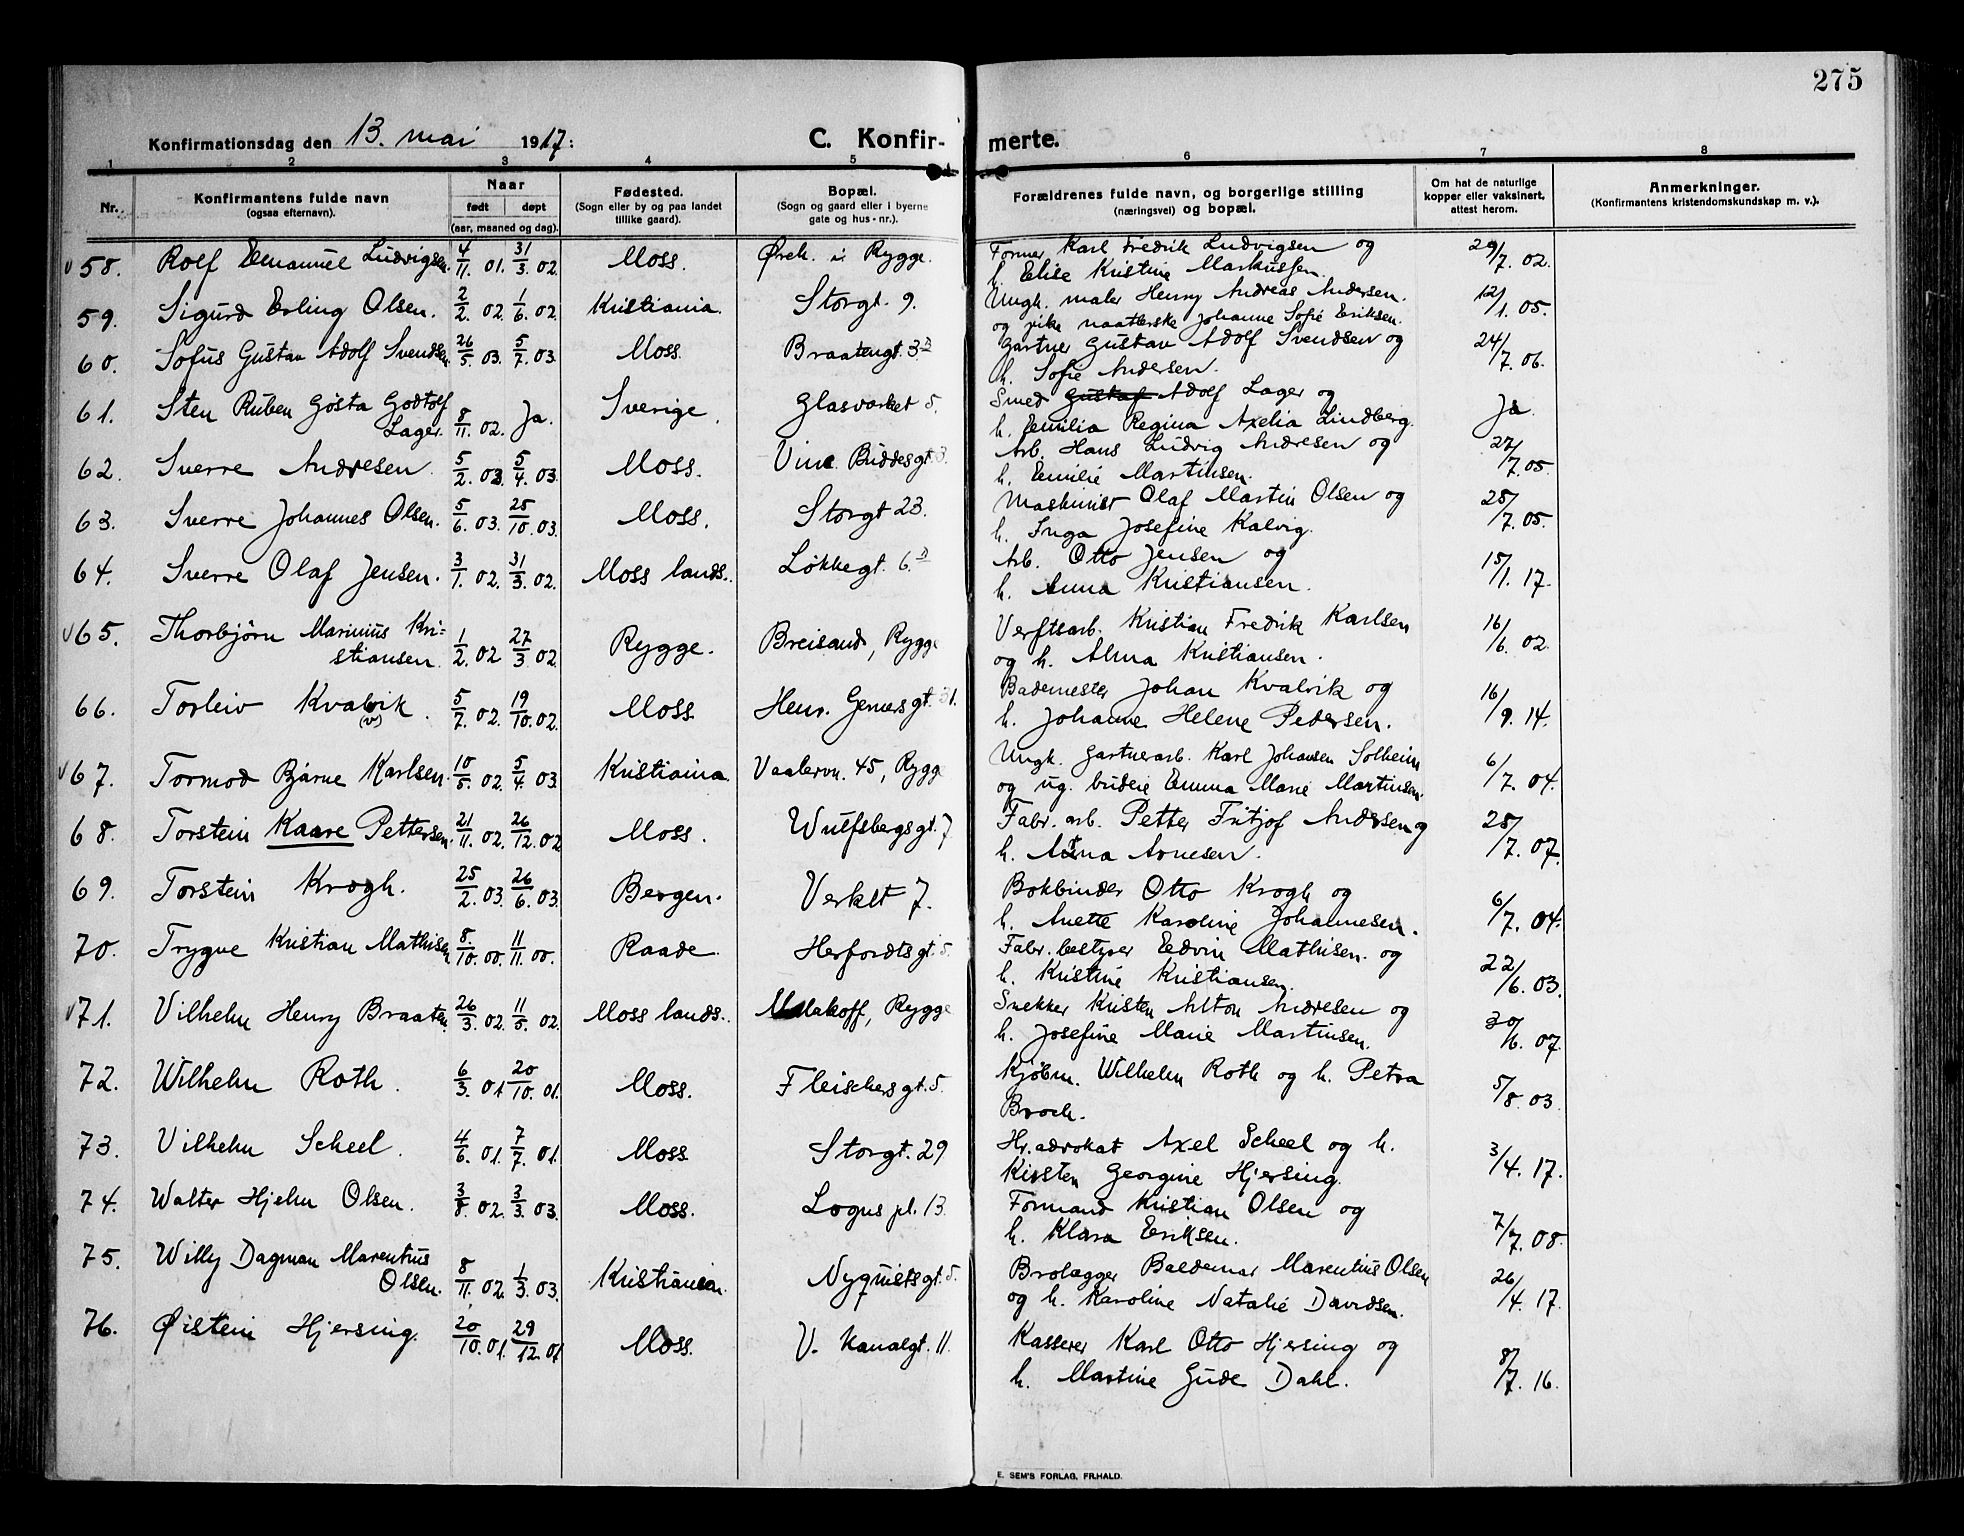 275
Konfirmationsdag den 13. mai 1917:
C. Konfir-merte.
1 2 3 4 5 6 7 8
Nr.
Konfirmantens fulde navn
(ogsaa efternavn).
Naar
født døpt
(aar, maaned og dag).
Fødested.
(Sogn eller by og paa landet
tillike gaard).
Bopæl.
(Sogn og gaard eller i byerne
gate og hus-nr.).
Forældrenes fulde navn, og borgerlige stilling
(næringsvei) og bopæl.
Om hat de naturlige
kopper eller vaksinert,
attest herom.
Anmerkninger.
(Konfirmantens kristendomskundskap m. v.).
58. Rolf Emanuel Ludvigsen. 4/11. 01. 31/3. 02. Moss. Ørek. i Rygge. Former Karl Fredrik Ludvigsen og 29/7. 02.
h. Elise Kristine Markussen.
59. Sigurd Erling Olsen. 2/2. 02. 1/6. 02. Kristiania. Storgt. 9. Ungk. maler Henry Andreas Andersen. 12/1. 05.
og pike naatlerske Johanne Sofie Eriksen.
60. Sofus Gustav Adolf Svendsen 26/5. 03. 5/7. 03. Moss. Braatengt. 3B Gartner Gustav Adolf Svendsen og 24/7. 06.
h. Sofie Andersen.
61. Sten Ruben Gösta Godtolf
Lager. 8/11. 02. Ja. Sverige. Glasverket 5. Smed Gustaf Adolf Lager og Ja.
h. Emilia Regina Axelia Lindberg.
62. Sverre Andresen. 5/2. 03. 5/4. 03. Moss. Vinc. Buddesgt. 3. Arb. Hans Ludvig Andresen og 27/7. 05.
h. Emilie Martinsen.
63. Sverre Johannes Olsen. 5/6. 03. 25/10. 03. Moss. Storgt 23. Maskinist Olaf Martin Olsen og 25/7. 05.
h. Inga Josefine Kalvig.
64. Sverre Olaf Jensen. 3/1. 02. 31/3. 02. Moss lands.. Løkkegt. 6B Arb. Otto Jensen og 15/1. 17.
h. Anna Kristiansen.
65. Thorbjörn Marinius Kri=
stiansen. 1/2. 02 27/3. 02. Rygge. Breisand, Rygge Verftsarb. Kristian Fredrik Karlsen 16/6. 02.
og h. Alma Kristiansen.
66. Torleiv Kvalvik. (v) 5/7. 02. 19/10. 02. Moss. Henr. Gerners gt. 31. Bademester Johan Kvalvik og 16/9. 14.
h. Johanne Helene Pedersen.
67. Tormod Bjarne Karlsen. 10/5. 02. 5/4. 03. Kristiania Vaalervn. 45, Rygge Ungk. gartnerarb. Karl Johansen Solheim 6/7. 04.
og ug. budeie Emma Marie Martinsen.
68. Torstein Kaare Pettersen. 21/11. 02. 26/12. 02 Moss. Wulfsbergsgt. 7 Fabr. arb. Petter Fritjof Andersen og 25/7. 07.
h. Anna Arnesen.
69. Torstein Krogh. 25/2. 03. 26/6. 03. Bergen. Verket 7. Bokbinder Otto Krogh og 6/7. 04.
h. Anette Karoline Johannesen.
70. Trygve Kristian Mathisen 8./10. 00. 11/11. 00. Raade. Herfordtsgt. 5. Fabr. bestyrer Edvin Mathisen. og 22/6. 03.
h. Kristine Kristiansen.
71. Vilhelm Henry Braaten. 26/3. 02. 11/5. 02. Moss lands.. Malakoff, Rygge Snekker Kristen Alton Andresen og 30/6. 07.
h. Josefine Marie Martinsen.
72. Wilhelm Roth. 6/3. 01 20/10. 01. Moss. Fleischersgt. 5. Kjöbm. Wilhelm Roth og h. Petra 5/8. 03.
Broch.
73. Vilhelm Scheel. 4/6. 01. 7/7. 01. Moss Storgt. 29 Hr. advokat Axel Scheel og h. 3/4. 17.
Kirsten Georgine Hjersing.
74. Walter Hjelm Olsen. 3/8. 02. 3/3. 03. Moss. Logns pl. 13. Formand Kristian Olsen og 7/7. 08.
h. Klara Eriksen.
75. Willy Dagman Marentius
Olsen. 8/11. 02. 1/3. 03. Kristiania. Nyquistsgt. 5. Brolægger Baldemar Marentius Olsen 26/4. 17.
og h. Karoline Natalie Davidsen.
76. Øistein Hjersing. 20/10. 01. 29/12. 01 Moss. V. Kanalgt. 11. Kasserer Karl Otto Hjersing og 8/7. 16.
h. Martine Gude Dahl.
E. SEM'S FORLAG, FR.HALD.